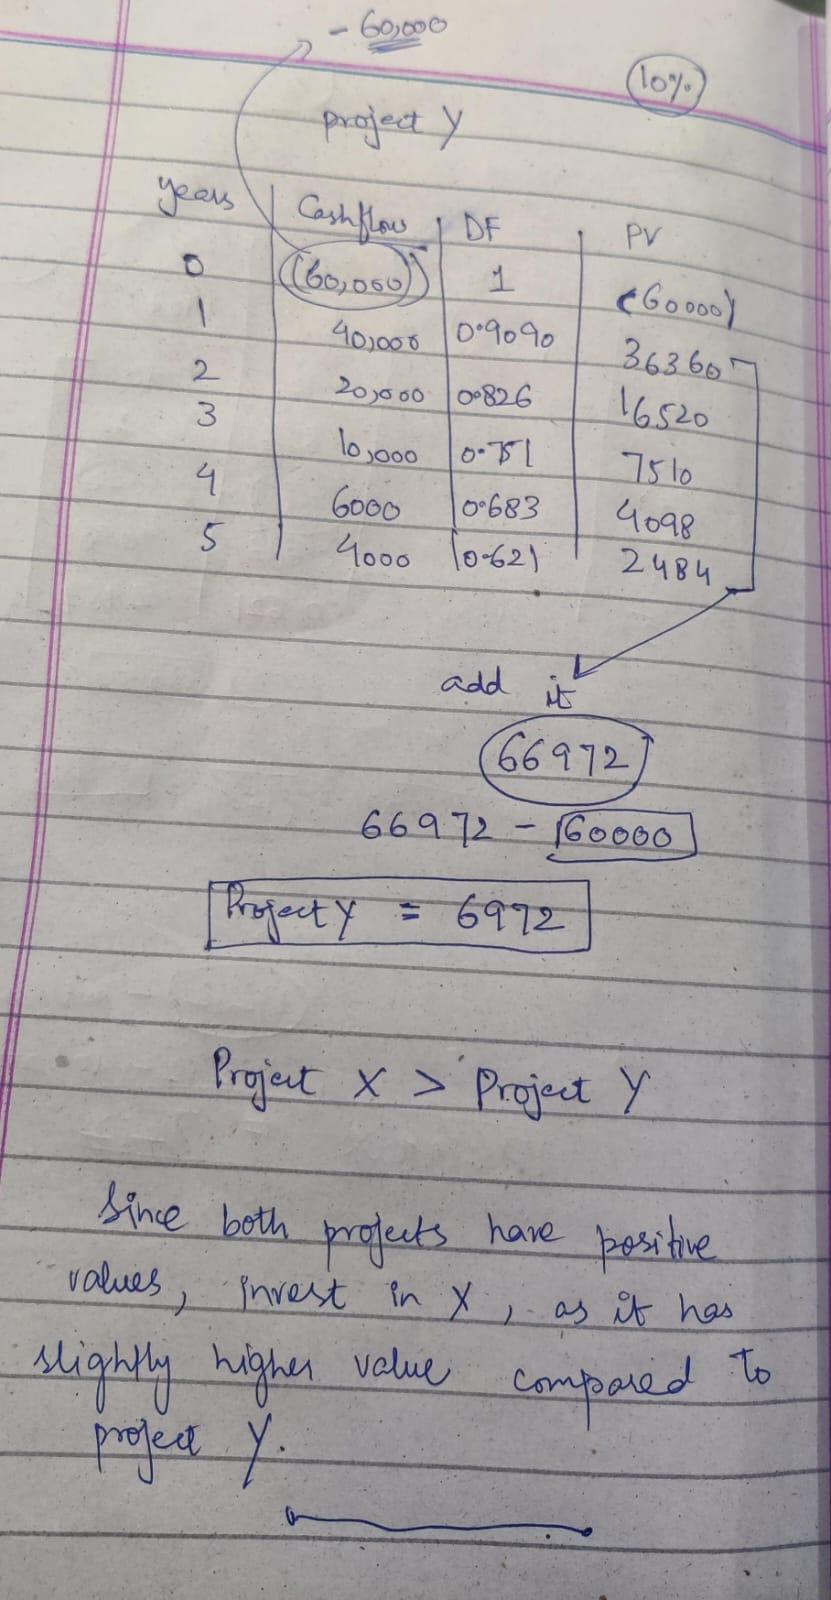 - 60,000
10%
project Y
years Cashflow DF PV
0 (60,000) 1 (60000)
1 40,000 0.9090 36360
2 20,000 0.826 16520
3 10,000 0.751 7510
4 6000 0.683 4098
5 4000 0.621 2484
add it
66972
66972 - 60000
Project Y = 6972
Project X > Project Y
Since both projects have positive
values, invest in X, as it has
slightly higher value compared to
project Y.